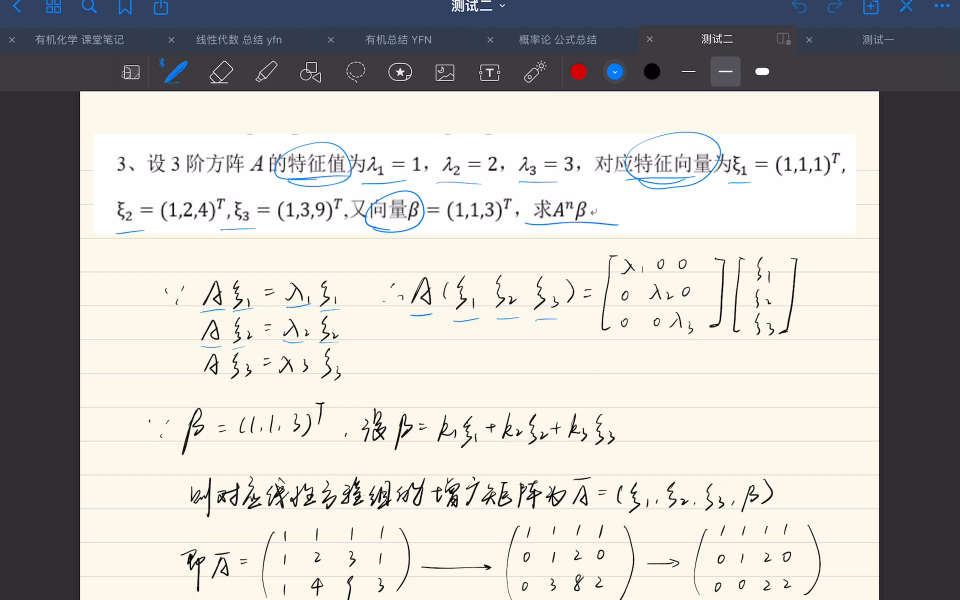 测试二
有机化学 课堂笔记
线性代数 总结 yfn
有机总结 YFN
概率论 公式总结
测试二
测试一
3、设 3 阶方阵 A 的特征值为λ₁ = 1，λ₂ = 2，λ₃ = 3，对应特征向量为ξ₁ = (1,1,1)ᵀ,
ξ₂ = (1,2,4)ᵀ,ξ₃ = (1,3,9)ᵀ,又向量β = (1,1,3)ᵀ，求Aⁿβ
∵ Aξ₁ = λ₁ξ₁ ∴ A(ξ₁ ξ₂ ξ₃) = [λ₁ 0 0; 0 λ₂ 0; 0 0 λ₃][ξ₁; ξ₂; ξ₃]
Aξ₂ = λ₂ξ₂
Aξ₃ = λ₃ξ₃
∵ β = (1,1,3)ᵀ, 设 β = k₁ξ₁ + k₂ξ₂ + k₃ξ₃
则对应线性方程组的增广矩阵为 Ā = (ξ₁, ξ₂, ξ₃, β)
即 Ā = (1 1 1 1; 1 2 3 1; 1 4 9 3) → (1 1 1 1; 0 1 2 0; 0 3 8 2) → (1 1 1 1; 0 1 2 0; 0 0 2 2)